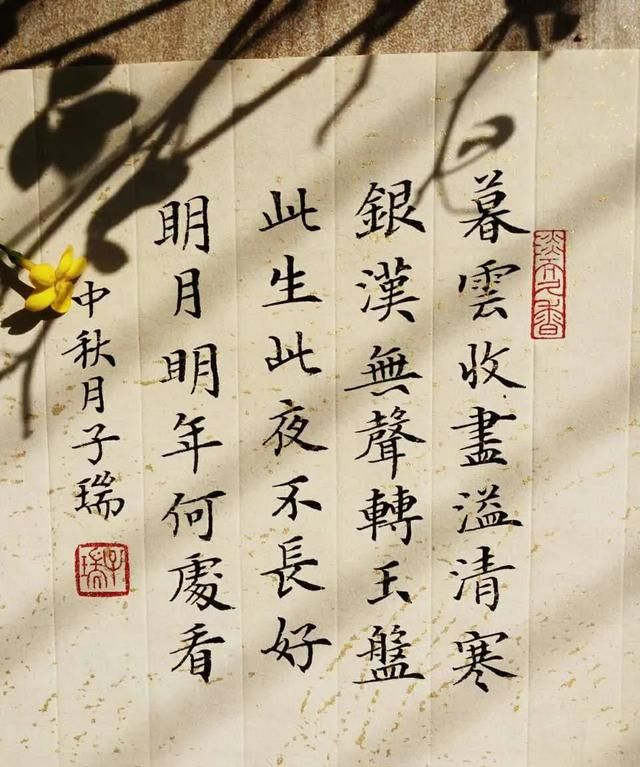 暮雲收盡溢清寒
銀漢無聲轉玉盤
此生此夜不長好
明月明年何處看
中秋月子瑞